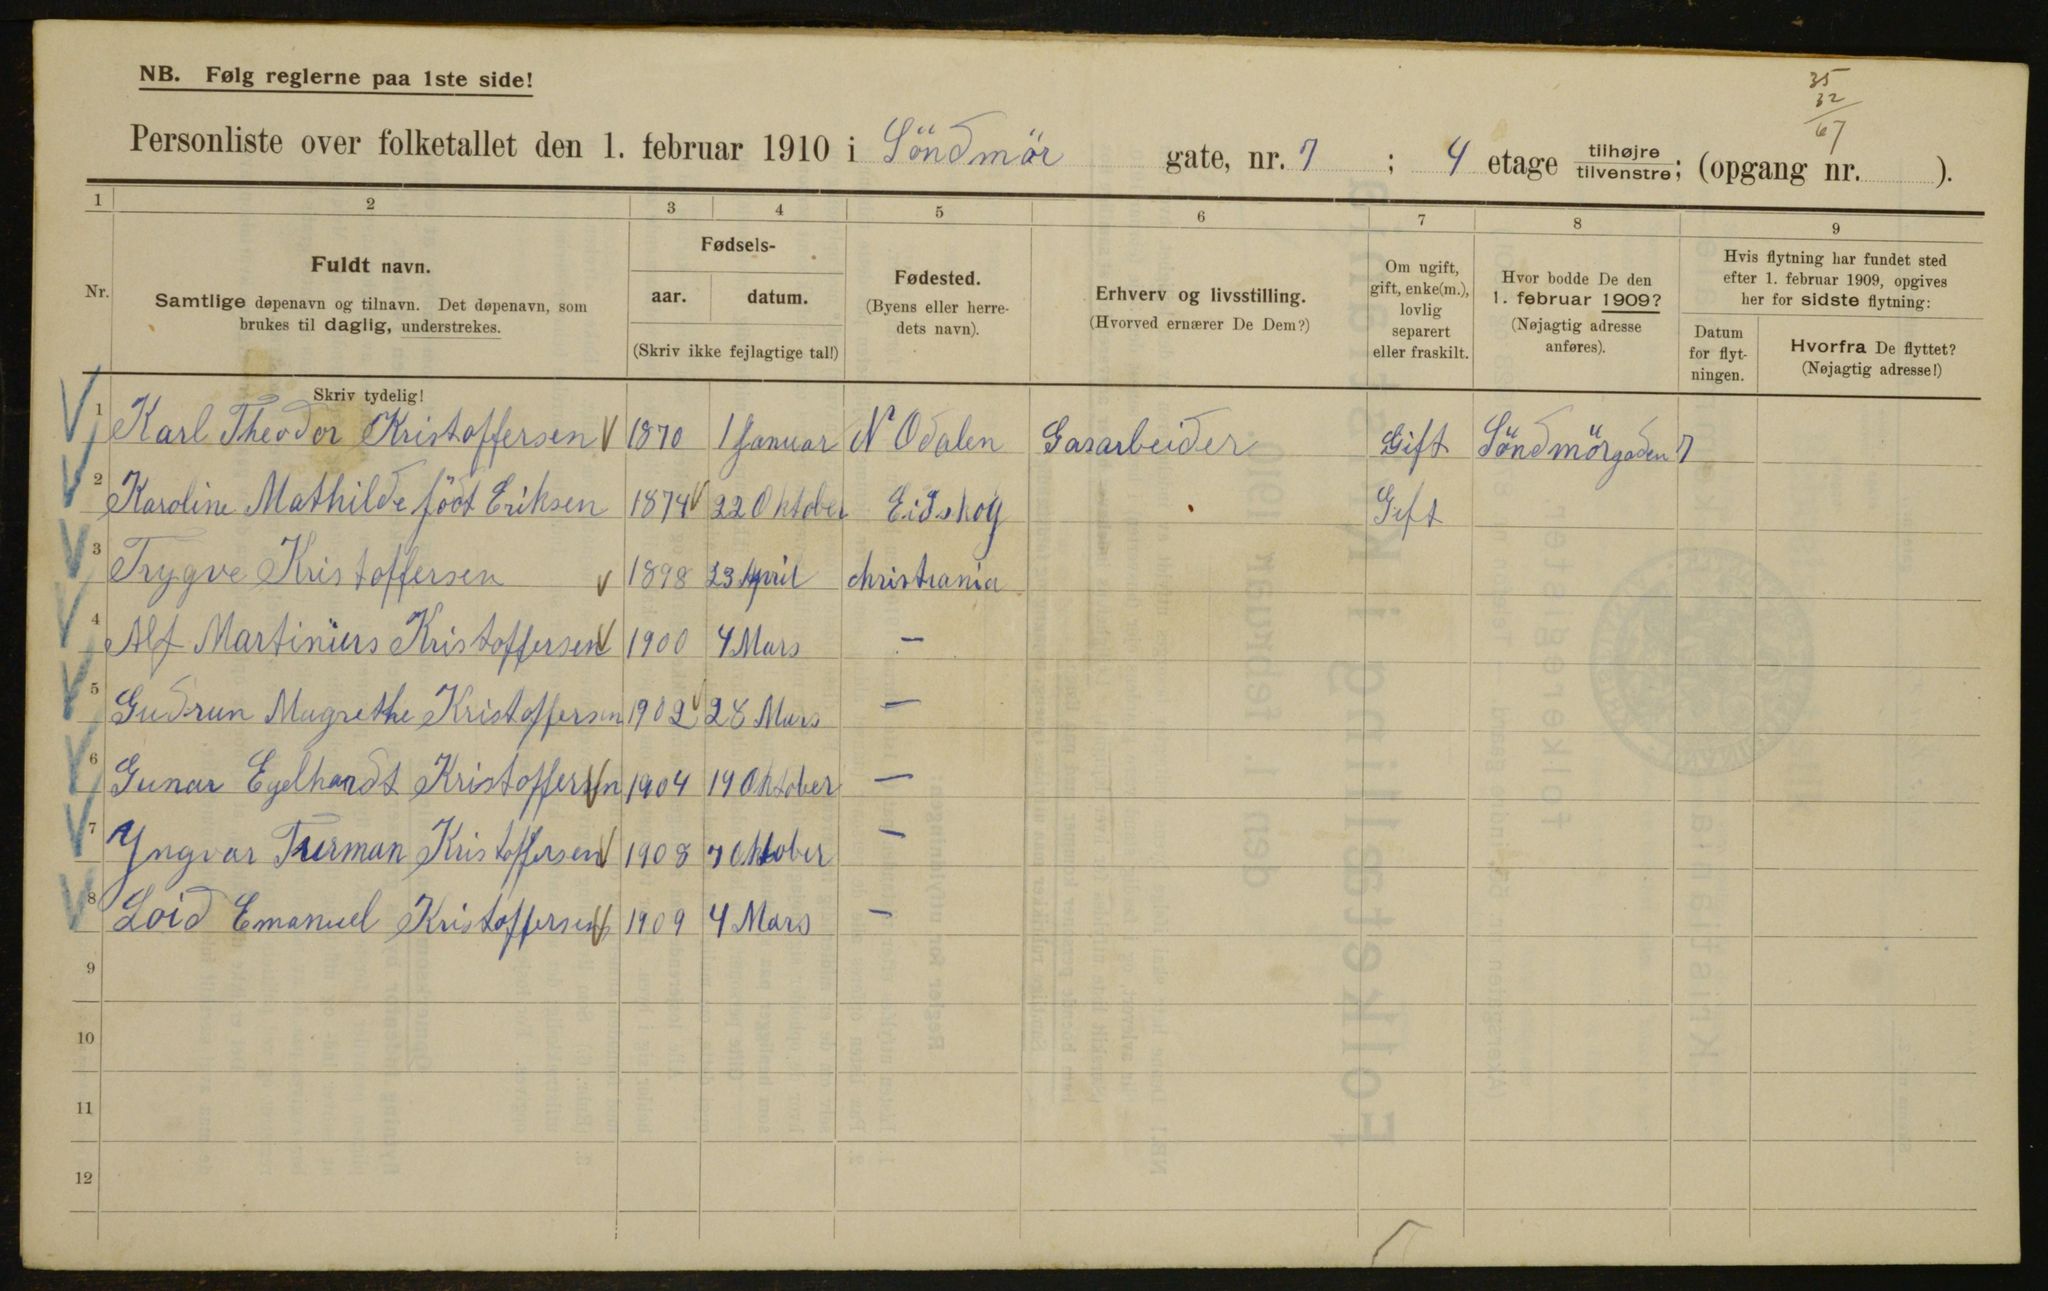 NB. Følg reglerne paa 1ste side!
35
32
67
Personliste over folketallet den 1. februar 1910 i Söndmör gate, nr. 7 ; 4 etage tilhøjre tilvenstre; (opgang nr. ).
1 2 3 4 5 6 7 8 9
Nr.
Fuldt navn.
Samtlige døpenavn og tilnavn. Det døpenavn, som
brukes til daglig, understrekes.
Skriv tydelig!
Fødsels-
aar. datum.
(Skriv ikke fejlagtige tal!)
Fødested.
(Byens eller herre-
dets navn).
Erhverv og livsstilling.
(Hvorved ernærer De Dem?)
Om ugift,
gift, enke(m.),
lovlig
separert
eller fraskilt.
Hvor bodde De den
1. februar 1909?
(Nøjagtig adresse
anføres).
Hvis flytning har fundet sted
efter 1. februar 1909, opgives
her for sidste flytning:
Datum
for flyt-
ningen.
Hvorfra De flyttet?
(Nøjagtig adresse!)
1 Karl Theodor Kristoffersen 1870 1 Januar N Odalen Gasarbeider Gift Söndmörgaden 7
2 Karoline Mathilde födt Eriksen 1874 22 Oktober Eidskog Gift
3 Trygve Kristoffersen 1898 23 April christiania
4 Alf Martinius Kristoffersen 1900 4 Mars —
5 Gudrun Magrethe Kristoffersen 1902 28 Mars —
6 Gunar Egelhardt Kristoffersen 1904 19 Oktober —
7 Yngvar Kristoffersen 1908 7 Oktober —
8 Loid Emanuel Kristoffersen 1909 4 Mars —
9
10
11
12